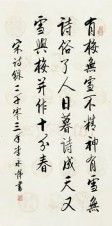 有梅無雪不精神有雪無
詩俗了人日暮詩成天又
雪與梅并作十分春
宋詩録二千零三年李永書